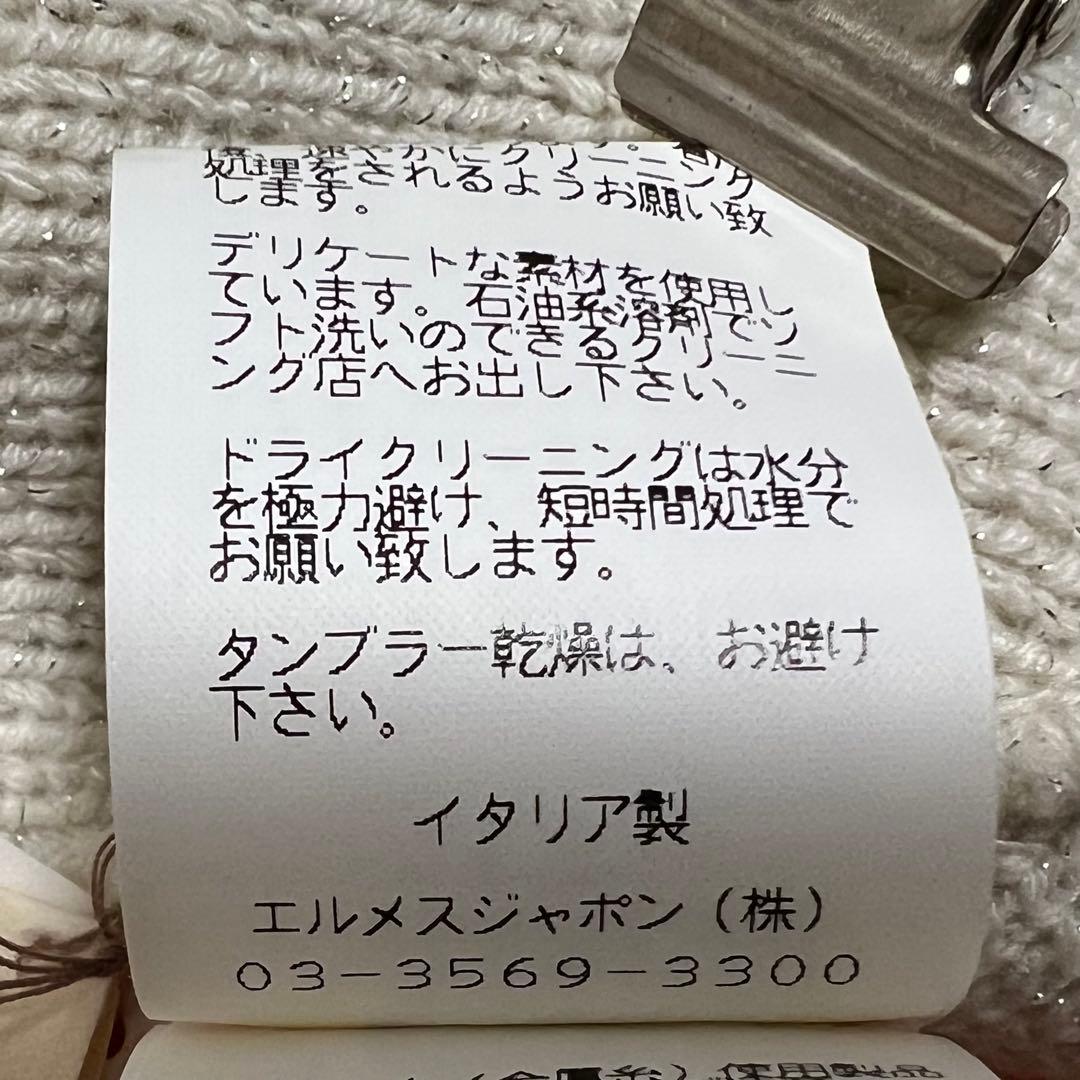 処理をされるようお願い致
します。
デリケートな素材を使用し
ています。石油系溶剤でソ
フト洗いのできるクリーニ
ング店へお出し下さい。
ドライクリーニングは水分
を極力避け、短時間処理で
お願い致します。
タンブラー乾燥は、お避け
下さい。
イタリア製
エルメスジャポン（株）
03-3569-3300
（金属糸）使用製品